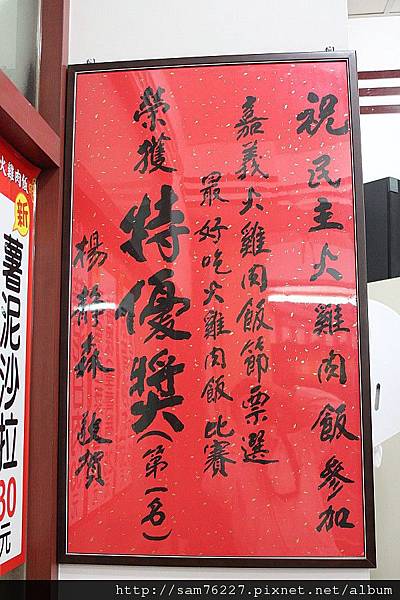 祝民主火雞肉飯參加
嘉義火雞肉飯節票選
最好吃火雞肉飯比賽
榮獲特優獎(第一名)
楊靜森敬賀
火雞肉飯
新
薯泥沙拉
30元
http://sam76227.pixnet.net/album